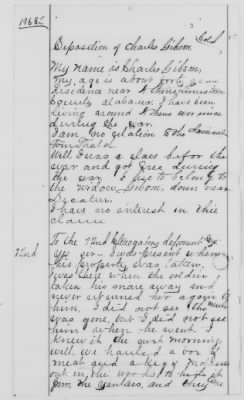 19682
Deposition of Charles Gibson Col
My name is Charles Gibson,
My age is about forty years
Residence near Athens Limestone
County, Alabama. I have been
living around Athens ever since
during the war.
I am no relation to the
Well I was a slave before the
war and got free during
the war I use to belong to
the widow Gibson down near
Decatur.
I have no interest in this
claim
72nd
To the 72nd Interrogatory deponent
says sir. I was present when
his property was taken,
I was there when the soldiers
taken his mare away and
never returned her again to
him, I did not see the
was gone, but I did not see
him when he went. I
knew it the next morning
well, we hauled a box of
meat and a keg of molasses
out in the woods to hide it
from the Yankees, and they